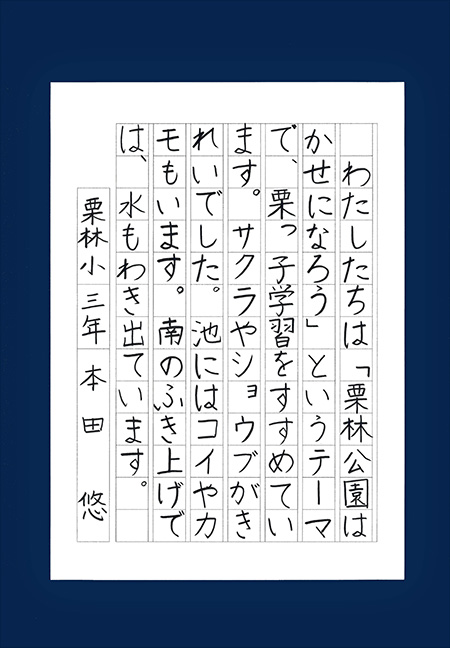 わたしたちは「栗林公園は
かせになろう」というテーマ
で、栗っ子学習をすすめてい
ます。サクラやショウブがき
れいでした。池にはコイやカ
モもいます。南のふき上げで
は、水もわき出ています。
栗林小三年　本田　悠